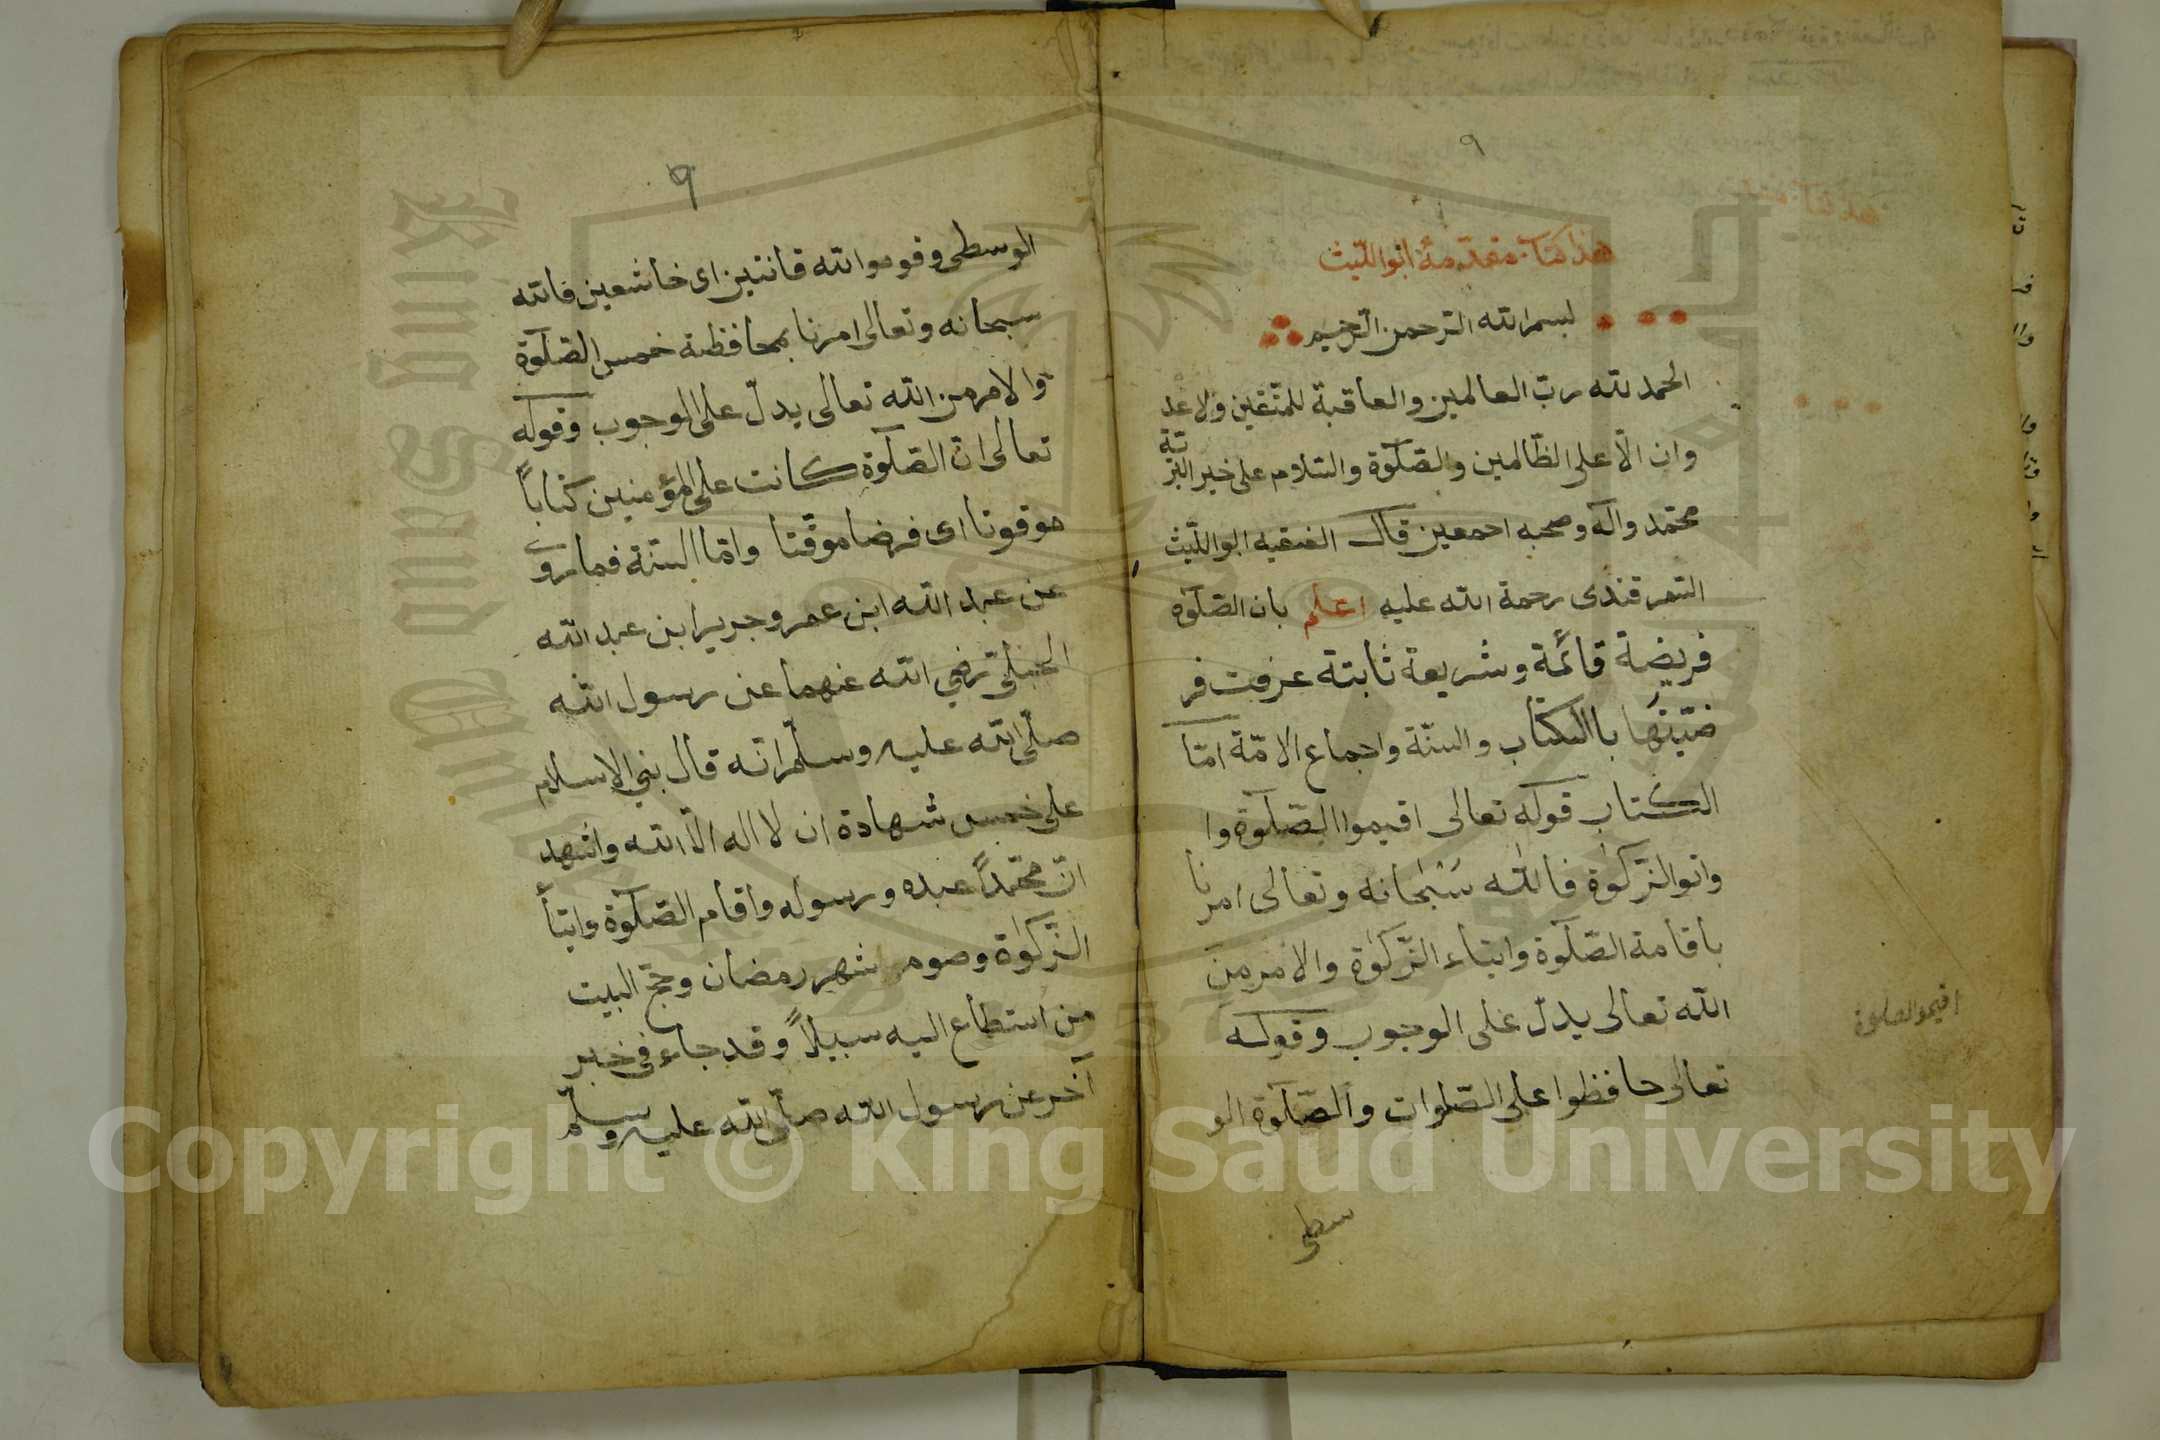 ٩
هذا كتاب مقدمة ابو الليث
بسم الله الرحمن الرحيم
الحمد لله ربّ العالمين والعاقبة للمتّقين ولا عد
وان الّا على الظّالمين والصّلوة والسّلام على خير البر
يّة
محمّد وآله وصحبه اجمعين قال الفقيه ابو اللّيث
السّمرقندى رحمة الله عليه اعلم بان الصّلوة
فريضة قائمة وشريعة ثابتة عرفت فر
ضيّتها باالكتاب والسنّة واجماع الامّة امّا
الكتاب قوله تعالى اقيموا الصّلوة وا
واتو الزّكوة فالله سبحانه وتعالى امرنا
باقامة الصّلوة وايتاء الزّكوة والامر من
الله تعالى يدلّ على الوجوب وقوله
تعالى حافظوا على الصّلوات والصّلوة الو
سطى
اقيموالصلوة
٩
الوسطى وقوموا لله قانتين اى خاشعين فالله
سبحانه وتعالى امرنا بمحافظة خمس الصّلوة
والامر من الله تعالى يدلّ على الوجوب وقوله
تعالى انّ الصّلوة كانت على المؤمنين كتاباً
موقوتا اى فرضا موقّتا وامّا السنّة فما روى
عن عبد الله ابن عمر وجرير ابن عبد الله
رضي الله عنهما عن رسول الله
صلّى الله عليه وسلّم انّه قال بني الاسلام
على خمس شهادة ان لا اله الّا الله واشهد
انّ محمّداً عبده ورسوله واقام الصّلوة وايتأ
الزّكوة وصوم شهر رمضان وحجّ البيت
من استطاع اليه سبيلاً وقد جاء فى خبر
آخر عن رسول الله صلّى الله عليه وسلّم
King Saud University
Copyright © King Saud University